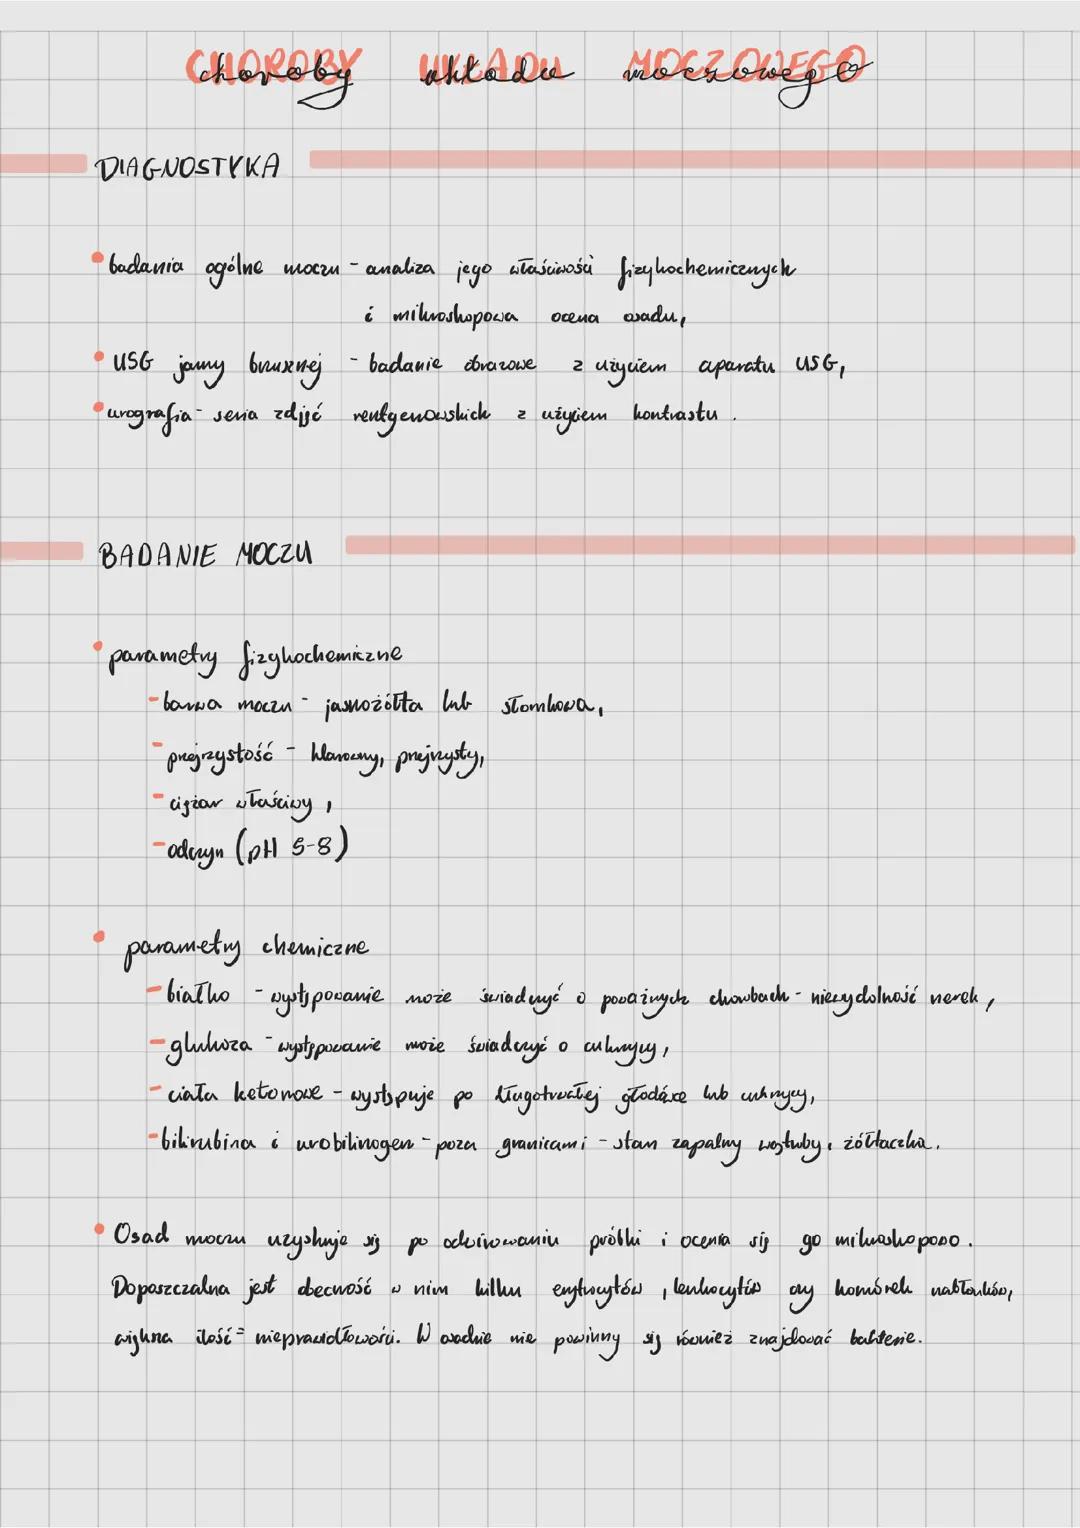 CHOROBY UKŁADU MOCZOWEGO
choroby układu moczowego
DIAGNOSTYKA
• badania ogólne moczu - analiza jego właściwości fizykochemicznych
i mikroskopowa ocena osadu,
• USG jamy brusznej - badanie obrazowe z użyciem aparatu USG,
• urografia - seria zdjęć rentgenowskich z użyciem kontrastu.
BADANIE MOCZU
• parametry fizykochemiczne
- barwa moczu - jasnożółta lub słomkowa,
- przejrzystość - klarowny, przejrzysty,
- ciężar właściwy,
- odczyn (pH 5-8)
• parametry chemiczne
- białko - występowanie może świadczyć o poważnych chorobach - niewydolność nerek,
- glukoza - występowanie może świadczyć o cukrzycy,
- ciała ketonowe - występuje po długotrwałej głodówce lub cukrzycy,
- bilirubina i urobilinogen - poza granicami - stan zapalny wątroby, żółtaczka.
• Osad moczu uzyskuje się po odwirowaniu próbki i ocenia się go mikroskopowo.
Dopuszczalna jest obecność w nim kilku erytrocytów, leukocytów czy komórek nabłonków,
większa ilość = nieprawidłowości. W osadzie nie powinny się również znajdować bakterie.